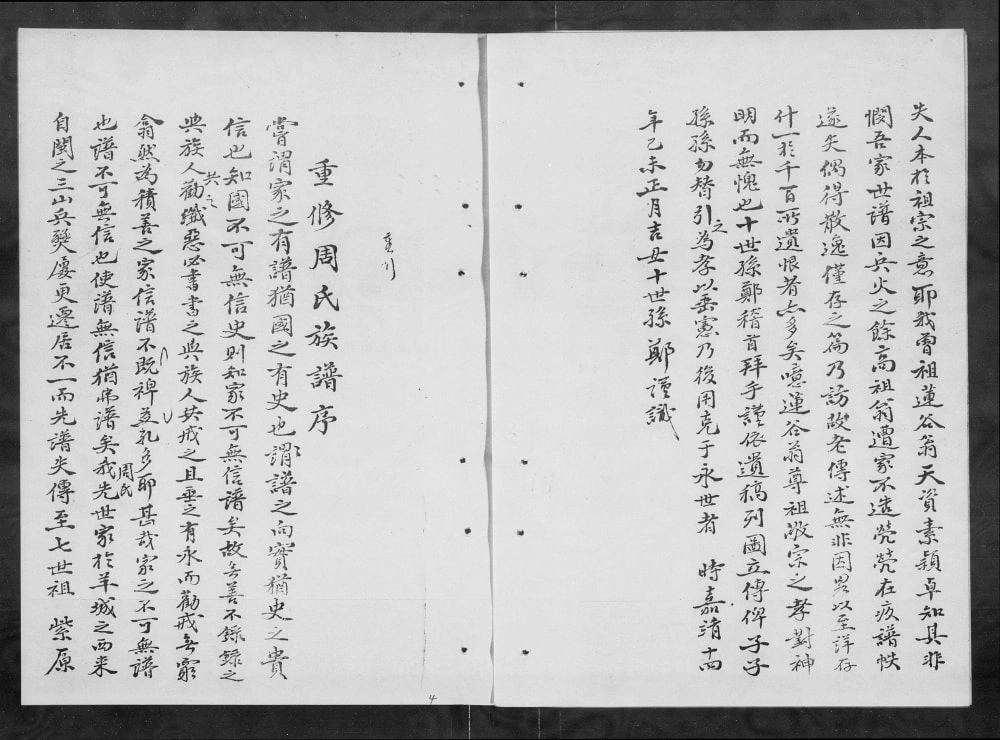 失人本於祖宗之意耶我曾祖蓮谷翁天資素穎卓知其非
憫吾家世譜因兵火之餘高祖翁遭家不造煢煢在疚譜帙
遂失偶得散逸僅存之篇乃訪故老傳述無非因畧以至詳存
什一於千百所遺恨者亦多矣噫蓮谷翁尊祖敬宗之孝對神
明而無愧也十世孫鄭稽首拜手謹依遺稿列圖立傳俾子子
孫孫勿替引之為孝以垂憲乃後用克于永世者 時嘉靖十四
年乙未正月吉旦十世孫鄭謹識
重修周氏族譜序
嘗謂家之有譜猶國之有史也謂譜之尚實猶史之貴
信也知國不可無信史則知家不可無信譜矣故無善不錄錄之
與族人共之勸纖惡必書書之與族人共戒之且垂之有永而勸戒無窮
翕然為積善之家信譜不既裨益孔多耶甚哉家之不可無譜
也譜不可無信也使譜無信猶弗譜矣我周氏先世家於羊城之西來
自閩之三山兵燹屢更遷居不一而先譜失傳至七世祖 紫原
4